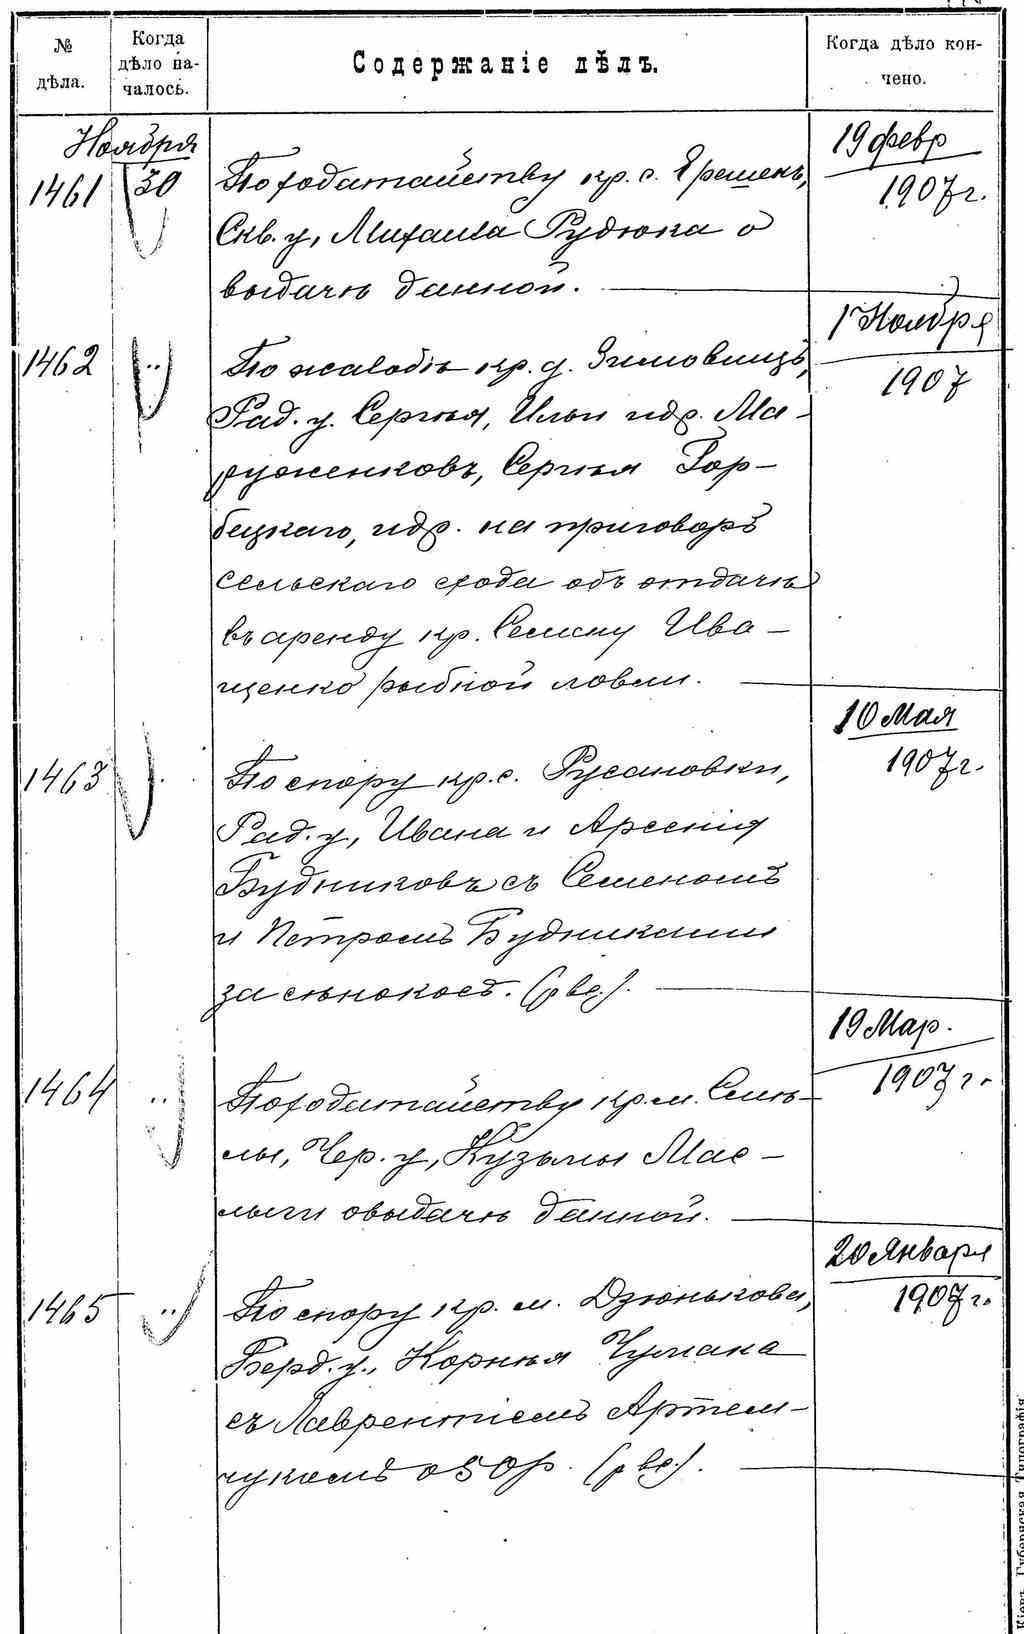 № дѣла.
Когда дѣло на-
чалось.
Содержаніе дѣлъ.
Когда дѣло кон-
чено.
Ноября
1461 30
По ходатайству кр. с. Ярешекъ,
Скв. у, Михаила Рудюка о
выдачѣ данной.
19 февр
1907 г.
1462 "
По жалобѣ кр. д. Зимовищъ,
Рад. у. Сергѣя, Ильи и др. Ма-
руженковъ, Сергѣя Гор-
бецкаго, и др. на приговоръ
сельскаго схода объ отдачѣ
въ аренду кр. Семену Ива-
щенко рыбной ловли.
1 Ноября
1907
1463
По спору кр. с. Русановки,
Рад. у, Ивана и Арсенія
Будниковъ съ Семеномъ
и Петромъ Будниками
за сѣнокосъ.
10 Мая
1907 г.
1464 "
По ходатайству кр. м. Смѣ-
лы, Чер. у, Кузьмы Мас-
лыги о выдачѣ данной.
19 Мар.
1907 г.
1465 "
По спору кр. м. Дзюнькова,
Берд. у., Корнѣя Чумака
съ Лаврентіемъ Артем-
чукомъ о 50 р.
20 Января
1907 г.
Кіевъ. Губернская Типографія.